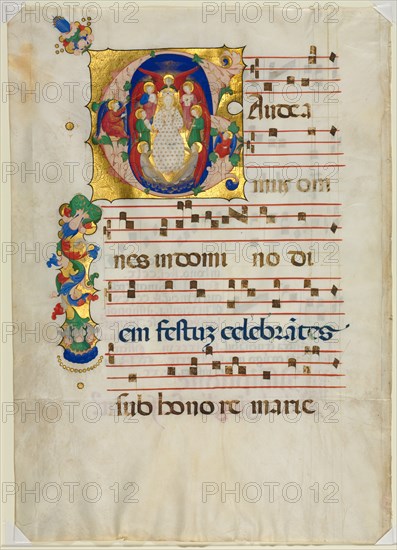 GAudea
mus om
nes in domi no di
em festuz celebrātes
sub hono re marie